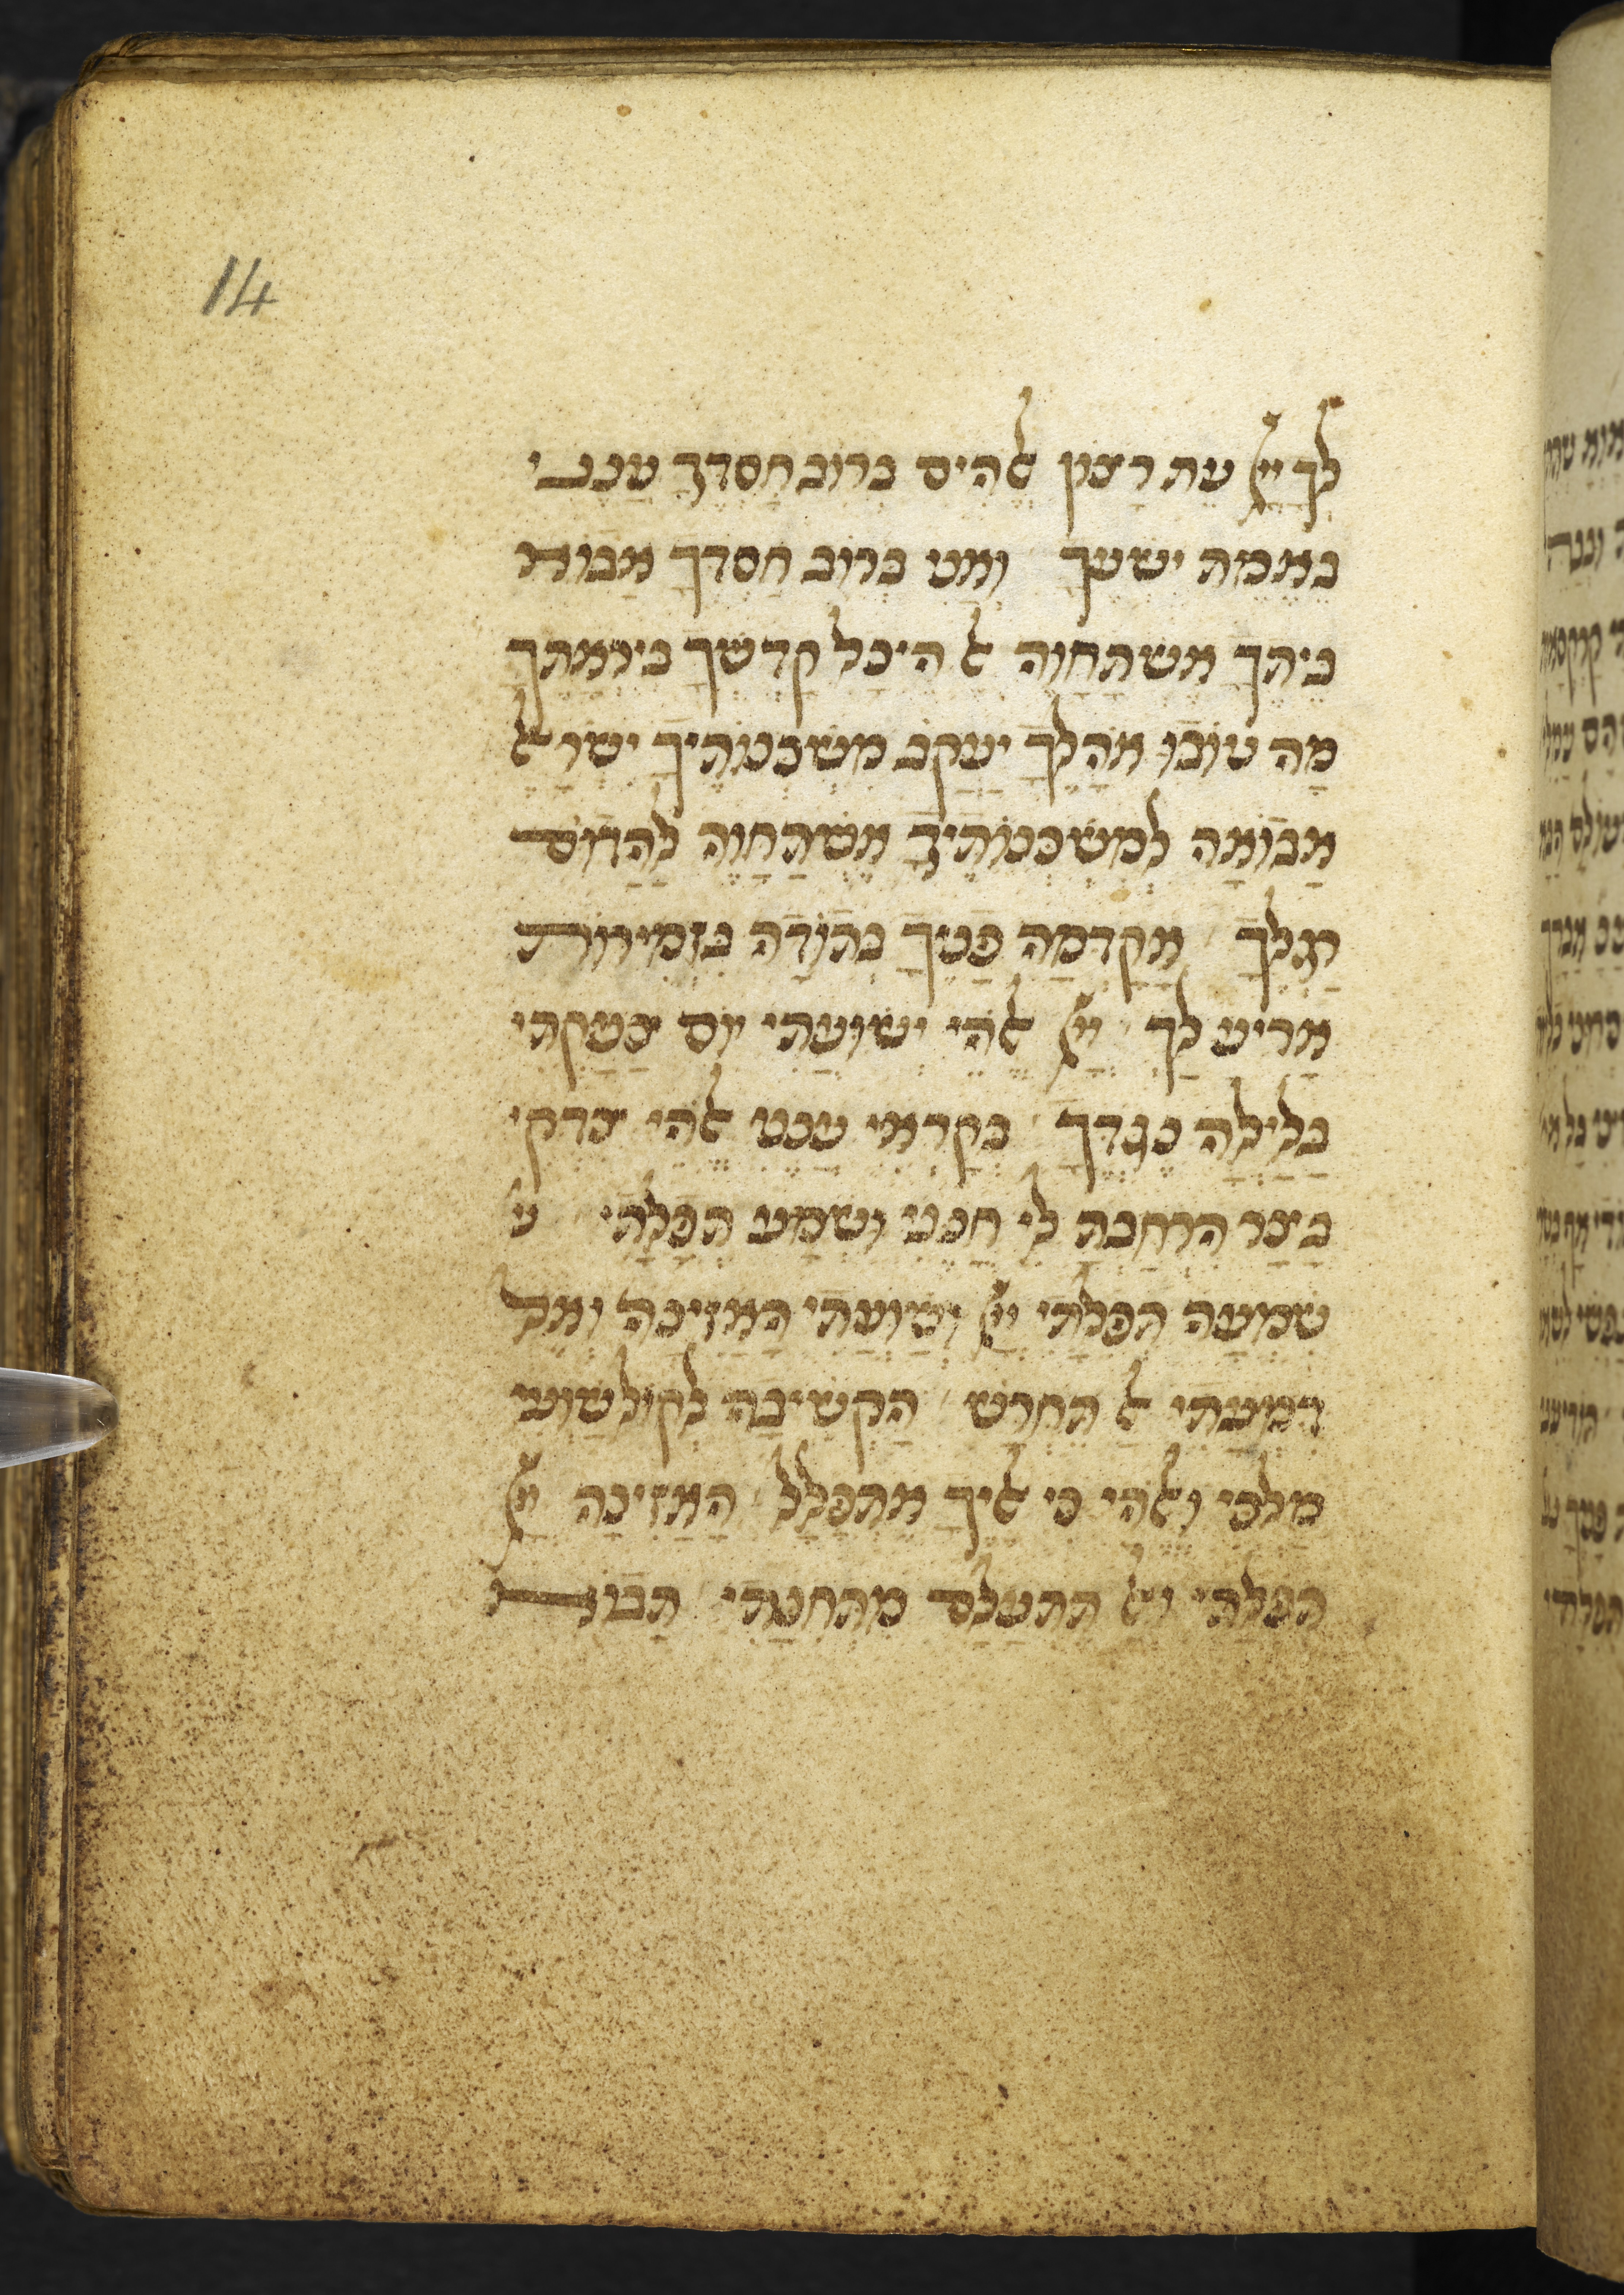 14
לך ייָ עת רצון אלהים ברוב חסדך ענני
באמת ישעך ואני ברוב חסדך אבוא
ביתך אשתחוה אל היכל קדשך ביראתך
מה טובו אהליך יעקב משכנותיך ישראל
אבואה למשכנותיך אשתחוה להדום
רגליך אקדמה פניך בתודה בזמירות
אריע לך ייָ אלהי ישועתי יום צעקתי
בלילה נגדך בקראי ענני אלהי צדקי
בצר הרחבת לי חנני ושמע תפלתי
שמעה תפלתי ייָ ושועתי האזינה ואל
דמעתי אל תחרש הקשיבה לקול שועי
מלכי ואלהי כי אליך אתפלל האזינה ייָ
תפלתי ואל תתעלם מתחנתי תבוא